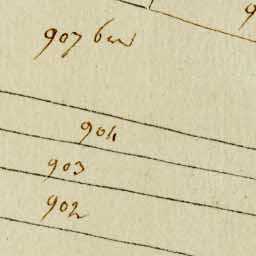 907 bis
904
903
902